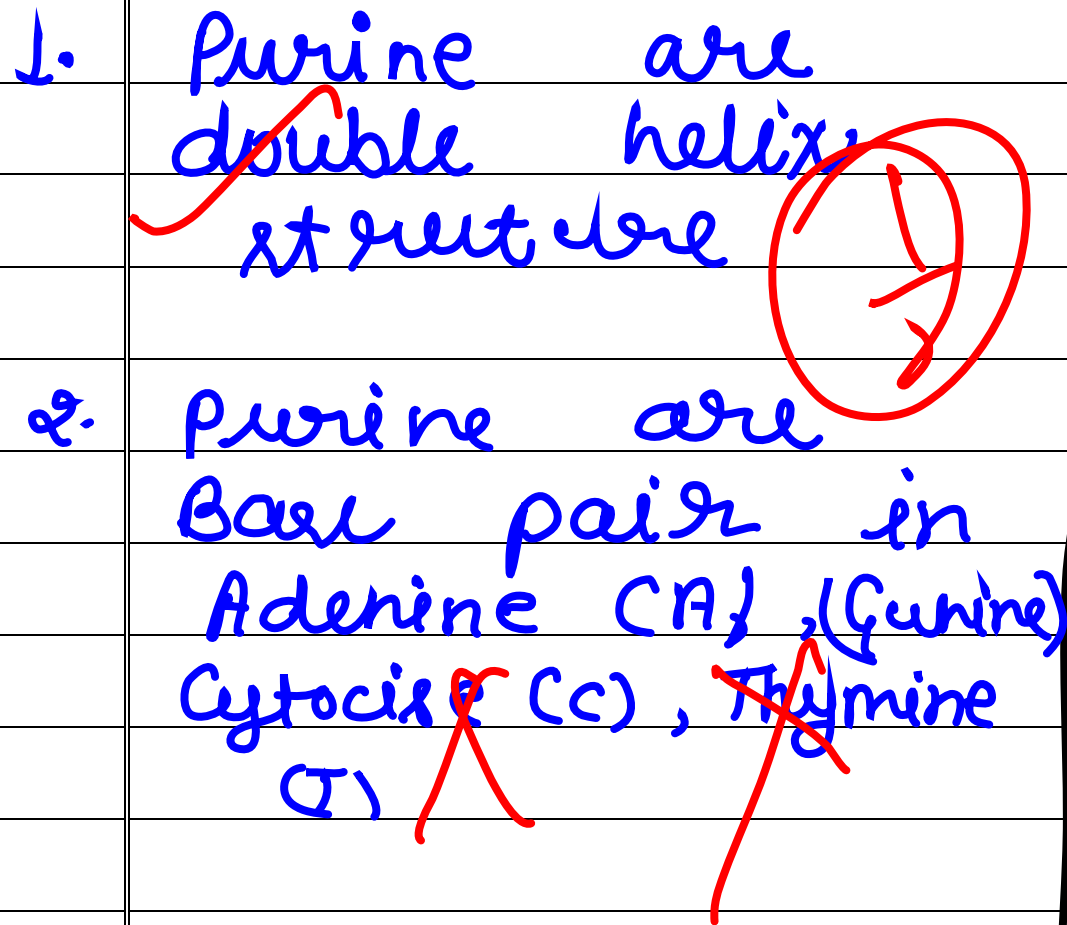 1. Purine are
double helix
structure
1/2
2. Purine are
Base pair in
Adenine (A), (Gunine)
Cytocise (C), Thymine
(T)